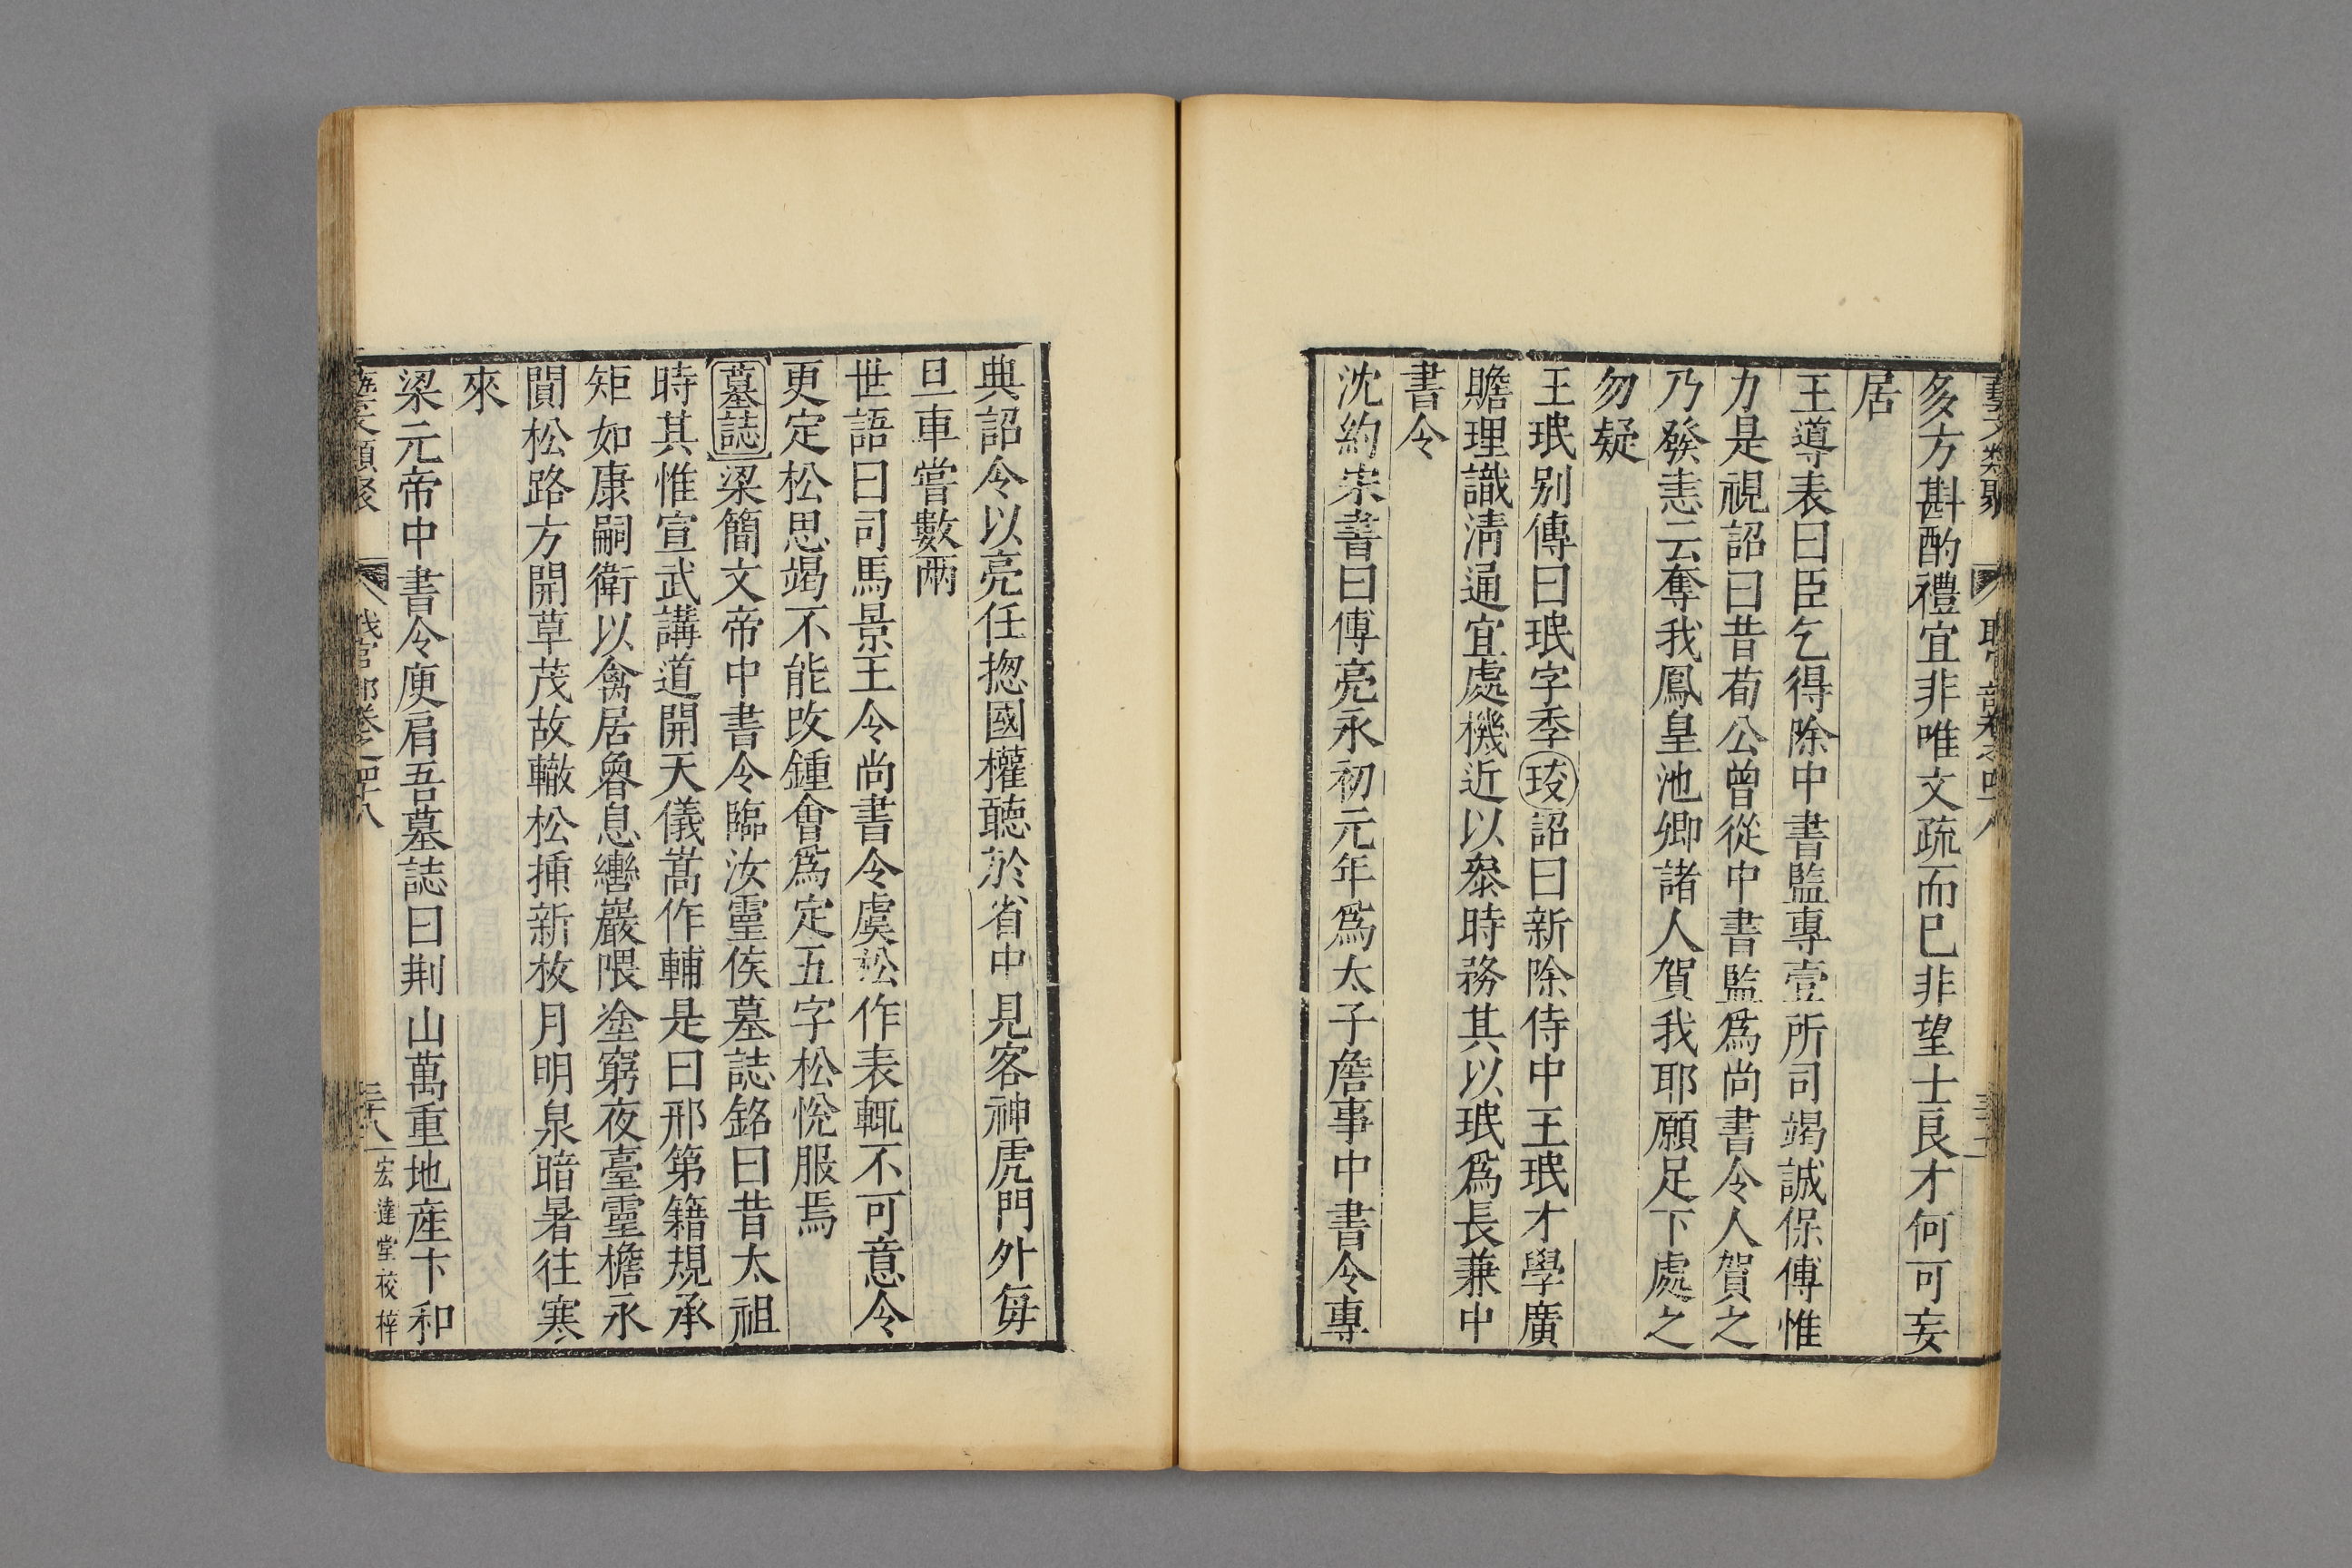 藝文類聚 職官部卷之四十八
多方斟酌禮宜非唯文疏而巳非望士良才何可妄
居
王導表曰臣乞得除中書監專壹所司竭誠保傅惟
力是視詔曰昔荀公曾從中書監爲尚書令人賀之
乃發恚云奪我鳳皇池卿諸人賀我耶願足下處之
勿疑
王珉别傳曰珉字季琰詔曰新除侍中王珉才學廣
贍理識清通宜處機近以叅時務其以珉爲長兼中
書令
沈約宋書曰傅亮永初元年爲太子詹事中書令專
典詔令以亮任揔國權聽於省中見客神虎門外每
旦車甞數兩
世語曰司馬景王令尚書令虞松作表輒不可意令
更定松思竭不能改鍾會爲定五字松悅服焉
墓誌梁簡文帝中書令臨汝靈侯墓誌銘曰昔太祖
時其惟宣武講道開天儀嵩作輔是曰邢第籍規承
矩如康嗣衛以禽居魯息轡巖隈塗窮夜臺靈檐永
閴松路方開草茂故轍松揷新枚月明泉暗暑往寒
來
梁元帝中書令庾肩吾墓誌曰荆山萬重地産卞和
藝文類聚 職官部卷之四十八 三十八 宏達堂校梓